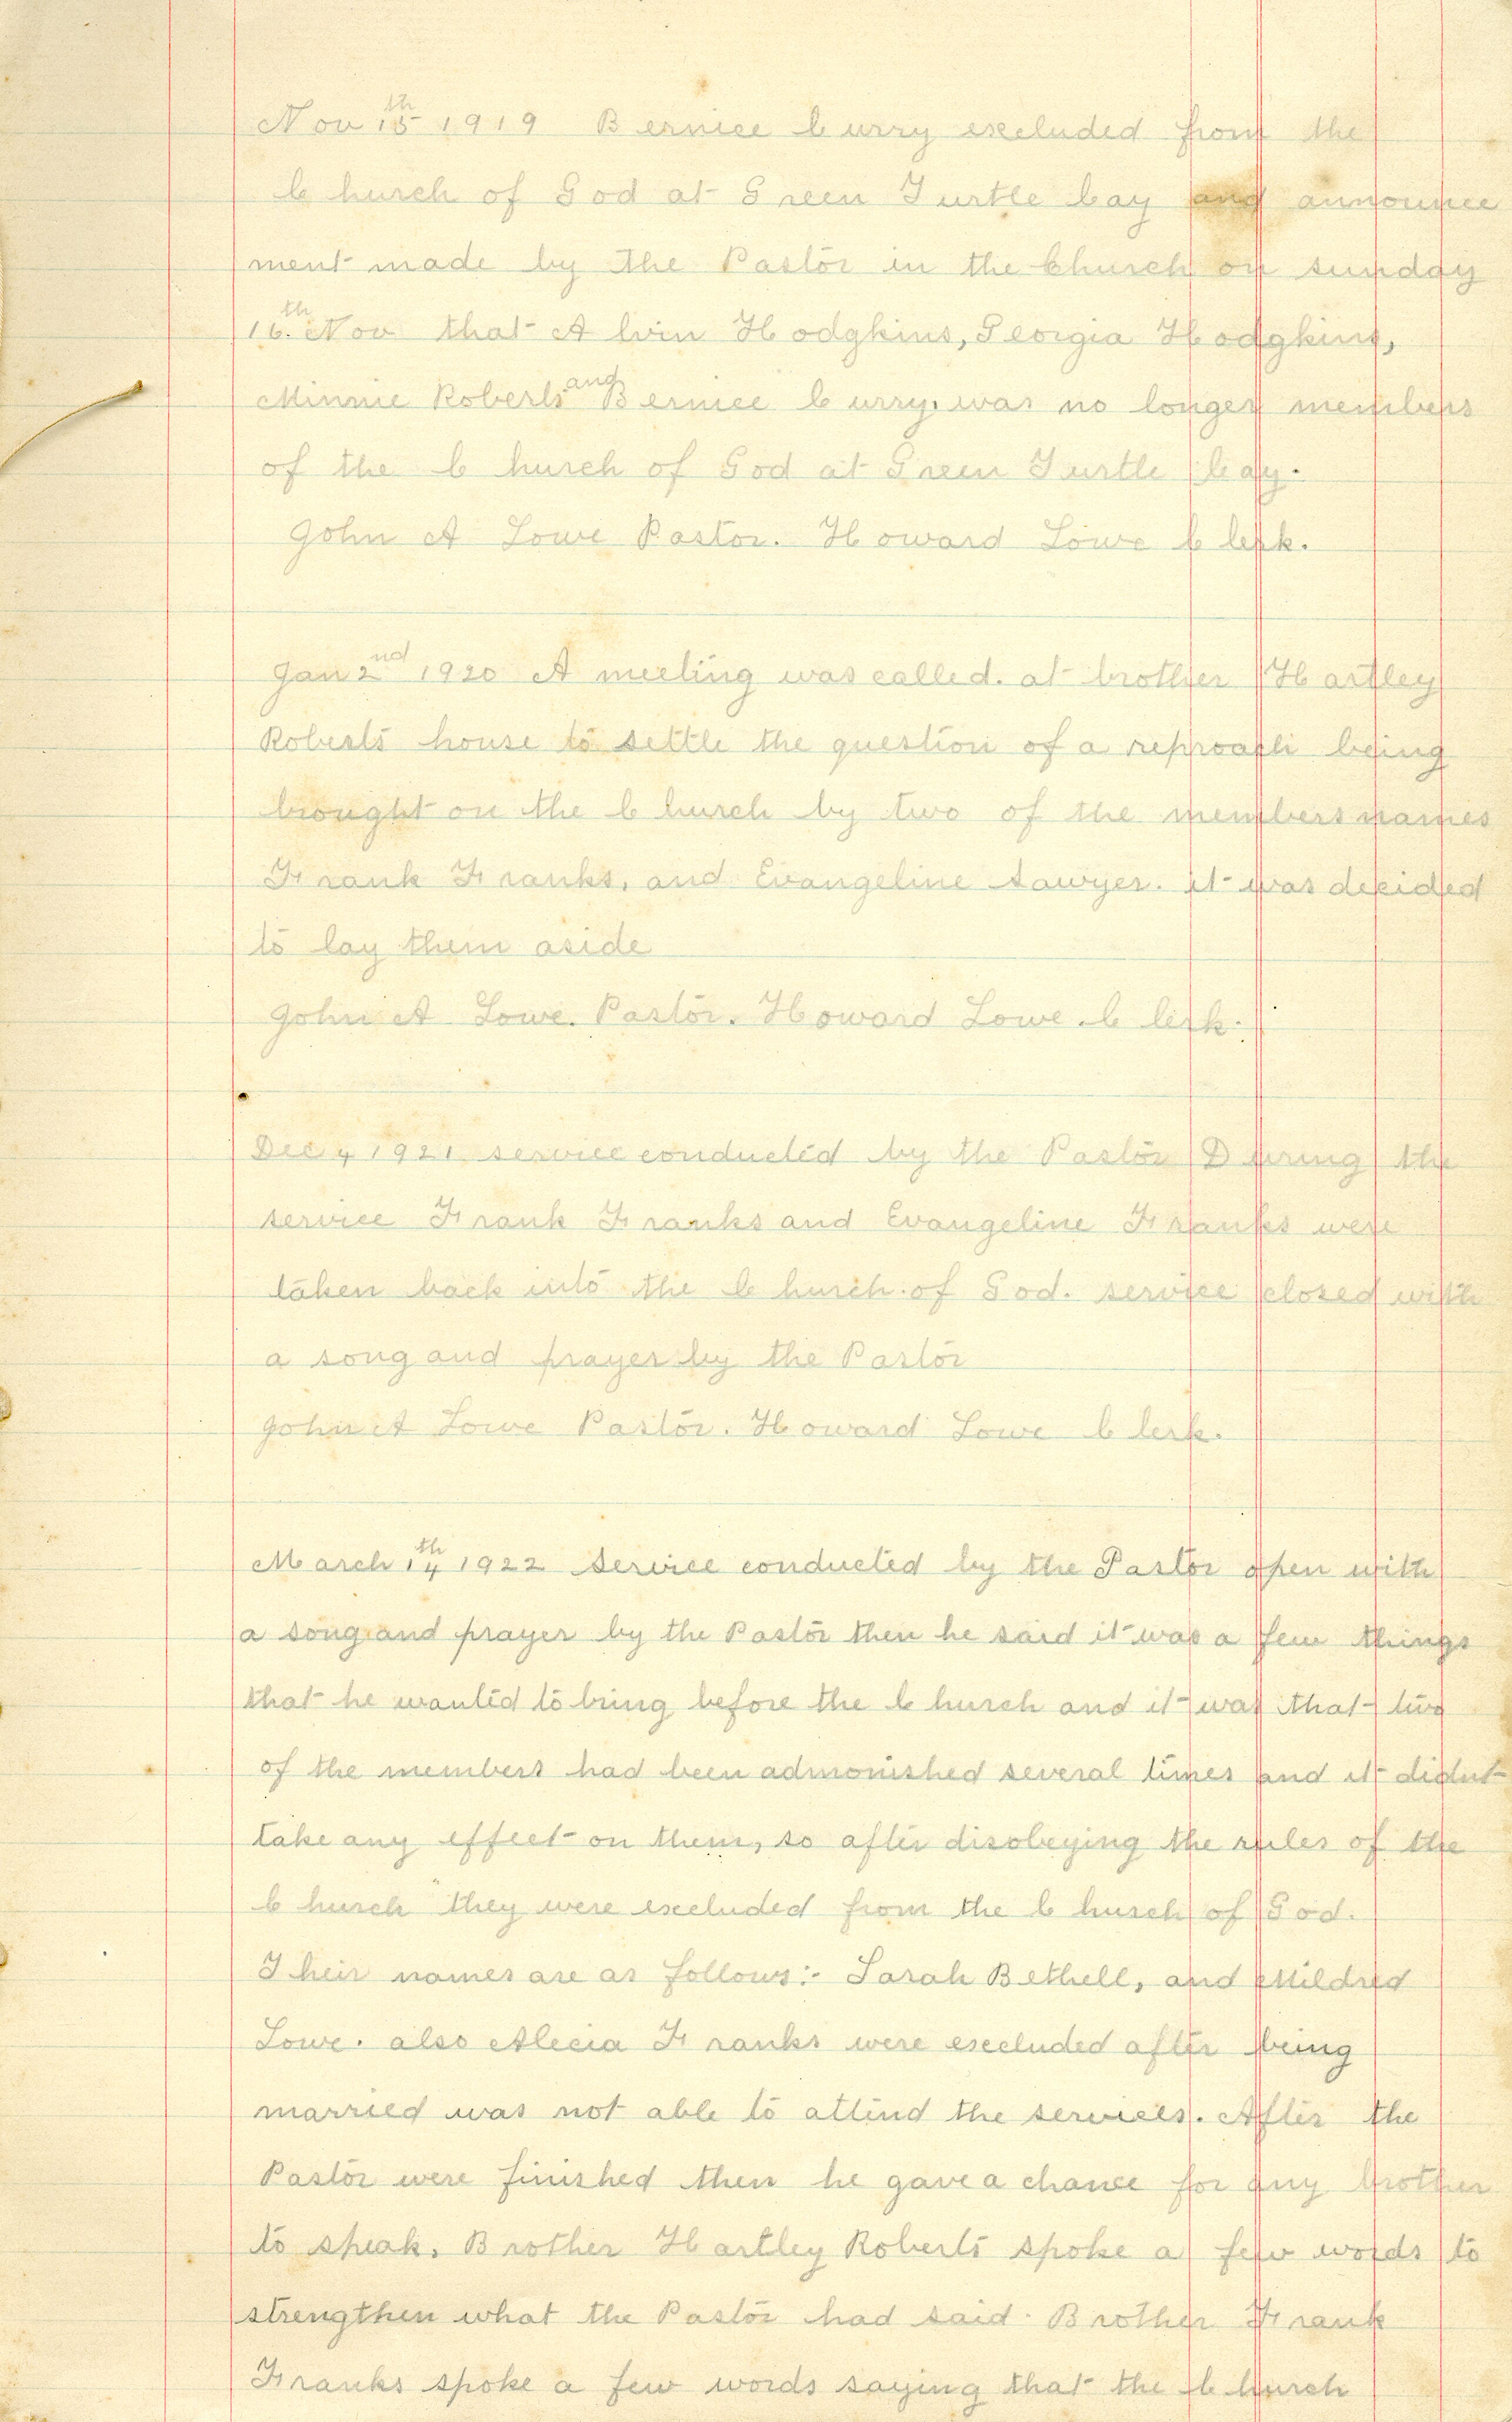 Nov 15th 1919 Bernice Curry excluded from the
Church of God at Green Turtle Cay and announce
ment made by the Pastor in the Church on sunday
16th. Nov that Alvin Hodgkins, Georgia Hodgkins,
Minnie Roberts and Bernice Curry, was no longer members
of the Church of God at Green Turtle Cay.
John A Lowe Pastor. Howard Lowe Clerk.
Jan 2nd 1920 A meeting was called. at brother Hartley
Roberts house to settle the question of a reproach being
brought on the Church by two of the members names
Frank Franks, and Evangeline Sawyer. it was decided
to lay them aside
John A Lowe. Pastor. Howard Lowe. Clerk.
Dec 4 1921 service conducted by the Pastor During the
service Frank Franks and Evangeline Franks were
taken back into the Church of God. service closed with
a song and prayer by the Pastor
John A Lowe Pastor. Howard Lowe Clerk.
March 14th 1922 Service conducted by the Pastor open with
a song and prayer by the Pastor then he said it was a few things
that he wanted to bring before the Church and it was that two
of the members had been admonished several times and it didnt
take any effect on them, so after disobeying the rules of the
Church they were excluded from the Church of God.
Their names are as follows:- Sarah Bethell, and Mildred
Lowe. also Alecia Franks were excluded after being
married was not able to attend the services. After the
Pastor were finished then he gave a chance for any brother
to speak. Brother Hartley Roberts spoke a few words to
strengthen what the Pastor had said. Brother Frank
Franks spoke a few words saying that the Church